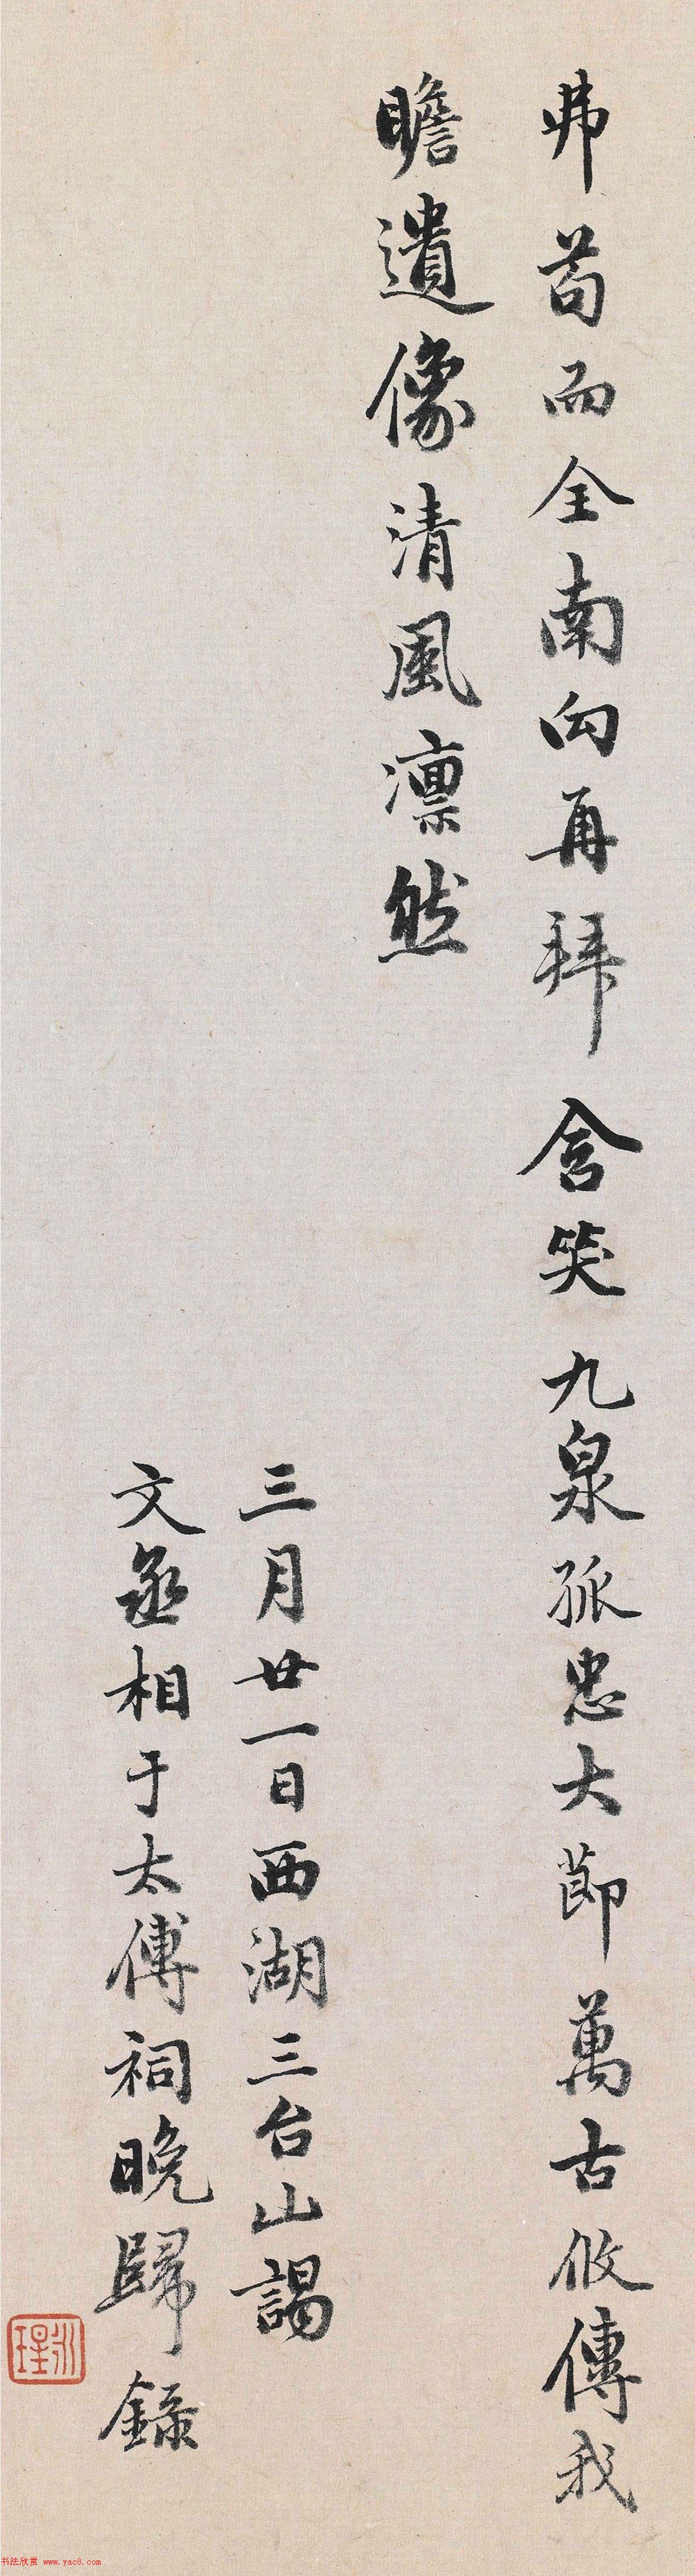 弗苟而全南向再拜含笑九泉孤忠大節萬古攸傳我
瞻遺像清風凛然
三月廿一日西湖三台山謁
文丞相于太傅祠晚歸錄
书法欣赏 www.yac8.com